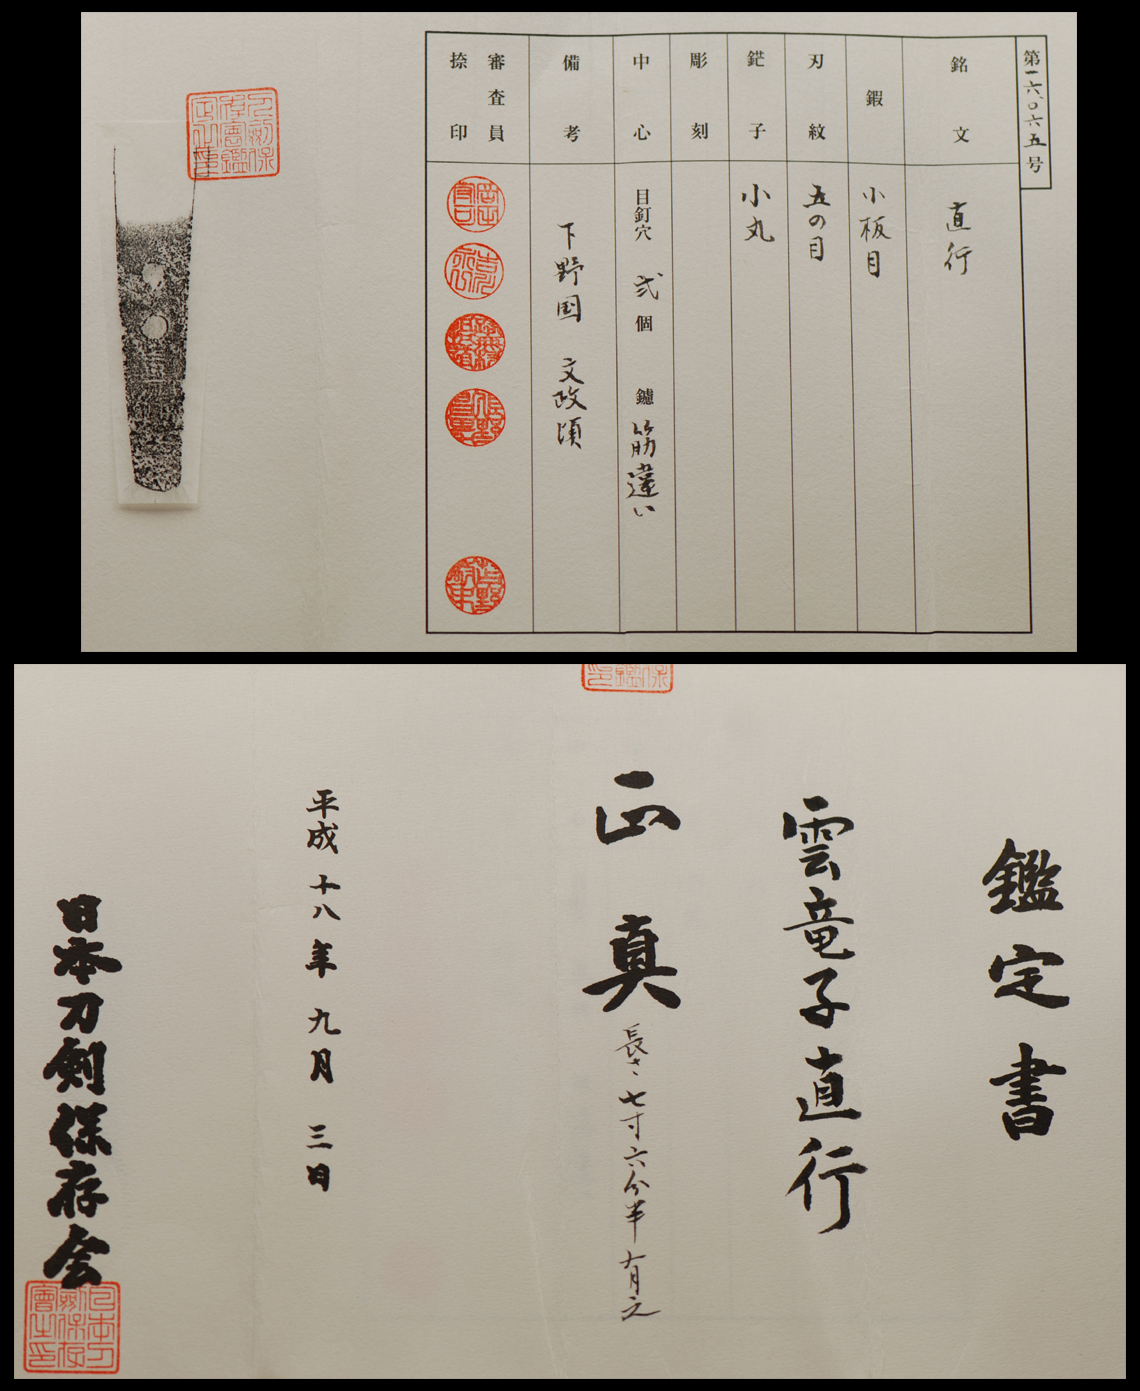 第一六〇六五号
銘文 直行
鍛 小板目
刃紋 五の目
鋩子 小丸
彫刻
中心 目釘穴 弐個 鑢 筋違い
備考 下野国 文政頃
審査員
捺印
鑑定書
雲竜子直行
正真
長さ七寸六分半有之
平成十八年九月三日
日本刀剣保存会